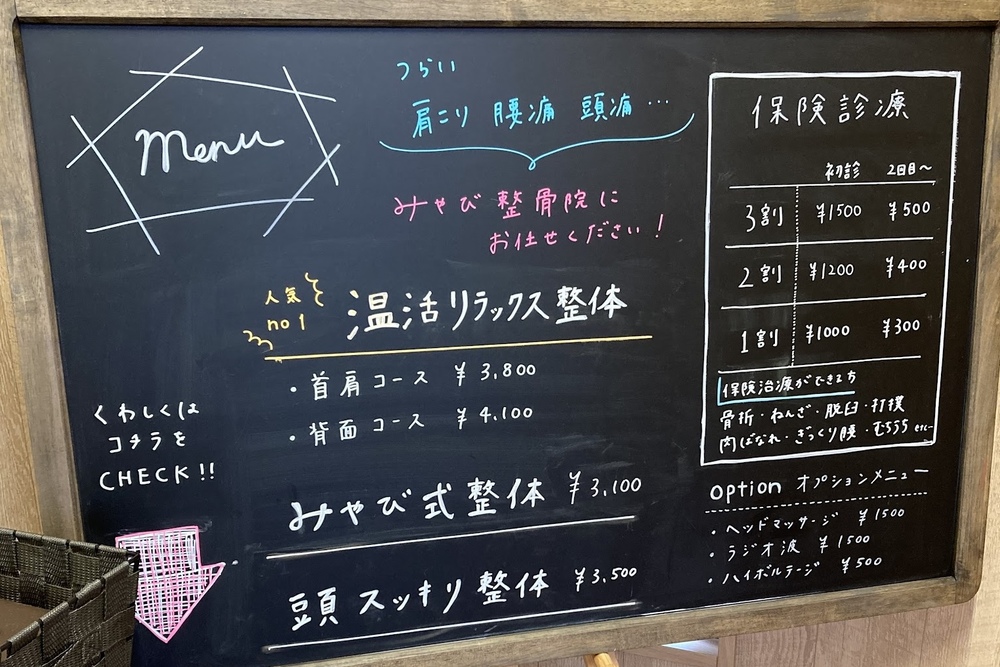 menu
つらい
肩こり 腰痛 頭痛…
みやび整骨院に
お任せください！
人気
no 1
温活リラックス整体
・首肩コース ¥3,800
・背面コース ¥4,100
みやび式整体 ¥3,100
頭スッキリ整体 ¥3,500
くわしくは
コチラを
CHECK!!
保険診療
初診 2回目〜
3割 ¥1500 ¥500
2割 ¥1200 ¥400
1割 ¥1000 ¥300
保険治療ができる方
骨折・ねんざ・脱臼・打撲
肉ばなれ・ぎっくり腰・むちうち etc…
option オプションメニュー
・ヘッドマッサージ ¥1500
・ラジオ波 ¥1500
・ハイボルテージ ¥500